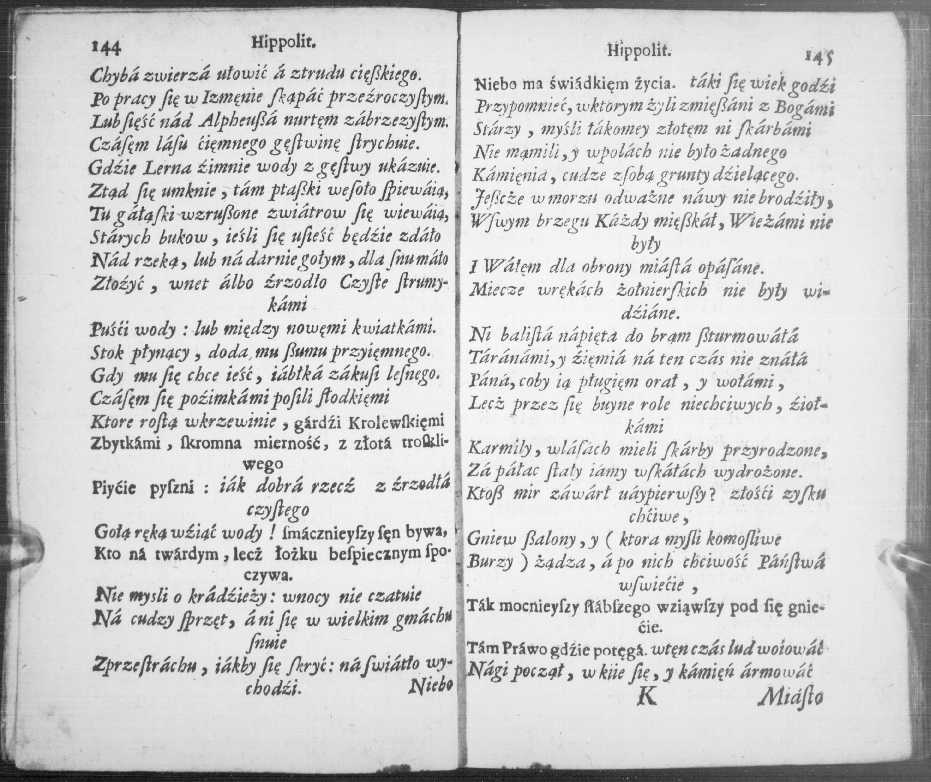 144 Hippolit.
Chybá zwierzá ułowić á ztrudu cięßkiego.
Po pracy ſię w Izmęnie ſkąpáć przeźroczyſtym.
Lub ſięść nád Alpheußá nurtęm zábrzezyſtym.
Czáſęm láſu ćięmnego gęſtwinę ſtrychuie.
Gdźie Lerna źimnie wody z gęſtwy ukázuie.
Ztąd ſię umknie, tám ptaßki weſoło ſpiewáią,
Tu gáłąſki wzrußone zwiátrow ſię wiewáią,
Stárych bukow, ieśli ſię uſieść będźie zdáło
Nád rzeką, lub ná darnie gołym, dla ſnu máło
Złożyć, wnet álbo źrzodło Czyſte ſtrumy-
kámi
Puśći wody : lub między nowęmi kwiatkámi.
Stok płynący, doda mu ßumu przyięmnego.
Gdy mu ſię chce ieść, iábłká zákuſi leſnego.
Czáſęm ſię poźimkámi poſili ſłodkięmi
Ktore roſtą wkrzewinie, gárdźi Krolewſkięmi
Zbytkámi, ſkromna mierność, z złotá troſkli-
wego
Piyćie pyſzni : iák dobrá rzecż z źrzodłá
czyſtego
Gołą ręką wźiąć wody ! ſmácznieyſzy ſęn bywa,
Kto ná twárdym, lecż łożku beſpiecznym ſpo-
czywa.
Nie mysli o krádźieży : wnocy nie czatuie
Ná cudzy ſprzęt, á ni ſię w wielkim gmáchu
ſnuie
Zprzeſtráchu, iákby ſię ſkryć : ná ſwiátło wy-
chodźi. Niebo
Hippolit. 145
Niebo ma świádkięm życia. táki ſię wiek godźi
Przypomnieć, wktorym żyli zmięßáni z Bogámi
Stárzy, myśli łákomey złotęm ni ſkárbámi
Nie mąmili, y wpolách nie było żadnego
Kámięnia, cudze zſobą grunty dźielącego.
Jeſżcże w morzu odważne náwy nie brodźiły,
Wſwym brzegu Káżdy mięßkáł, Wieżámi nie
były
I Wáłęm dla obrony miáſtá opáſáne.
Miecze wrękách żołnierſkich nie były wi-
dźiáne.
Ni baliſtá nápięta do bram ßturmowáłá
Táránámi, y źięmiá ná ten czás nie znáłá
Páná, coby ią pługięm orał, y wołámi,
Lecż przez ſię buyne role niechciwych, źioł-
kámi
Karmiły, wláſách mieli ſkárby przyrodzone,
Zá páłac ſtały iamy wſkáłách wydrożone.
Ktoß mir záwárł náypierwßy? złośći zyſku
chćiwe,
Gniew ßalony, y ( ktora myſli komoſliwe
Burzy ) żądza, á po nich chciwość Páńſtwá
wſwiećie,
Ták mocnieyſzy ſłábſzego wziąwſzy pod ſię gnie-
ćie.
Tám Práwo gdźie potęgá. wtęn czás lud woiowáł
Nági począł, w kiie ſię, y kámięń ármowáł
K Miáſto